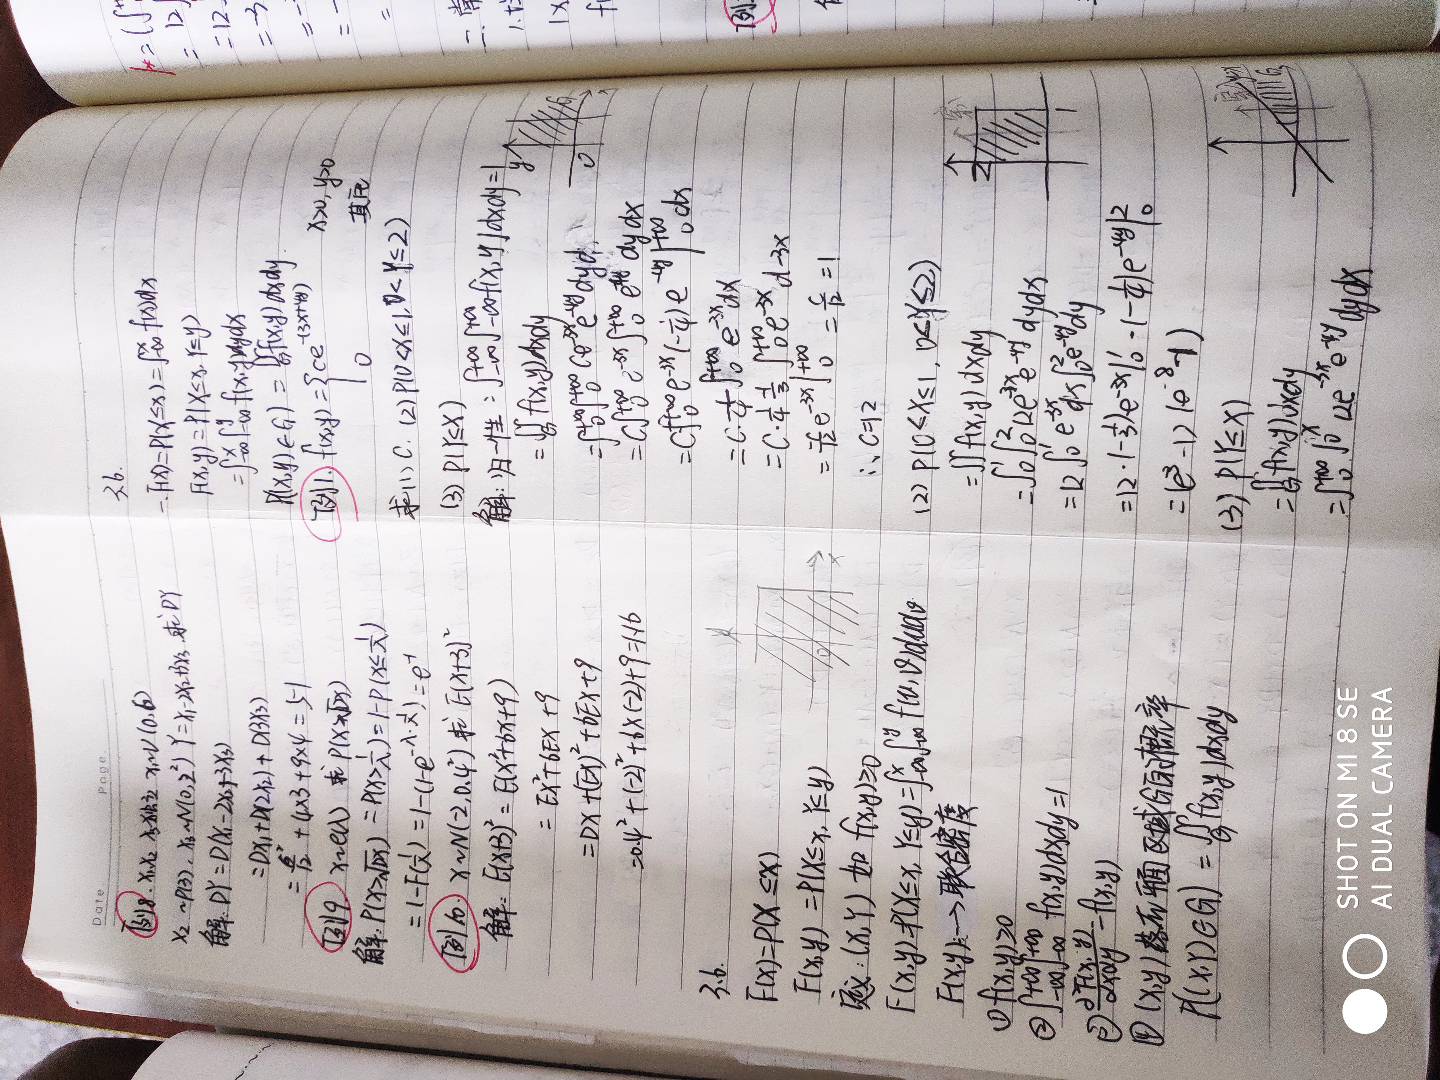 Date Page
例8. X₁X₂ X₃独立 X₁~U(0,6)
X₂~P(3), X₃~N(0,2²) Y=X₁-2X₂+3X₃ 求DY
解: DY=D(X₁-2X₂+3X₃)
=DX₁+D(2X₂)+D(3X₃)
=6²/12+4×3+9×4=51
例9 X~e(λ) 求P(X≥√DX)
解: P(X>√DX)=P(X>1/λ)=1-P(X≤1/λ)
=1-F(1/λ)=1-(1-e^{-λ·1/λ})=e⁻¹
例10. X~N(-2,0.4²) 求E(X+3)²
解: E(X+3)²=E(X²+6X+9)
=EX²+6EX+9
=DX+(EX)²+6EX+9
=0.4²+(-2)²+6×(-2)+9=1.16
3.6.
F(x)=P(X≤x)
F(x,y)=P(X≤x, Y≤y)
定义: (X,Y) 如 f(x,y)≥0
F(x,y)=P(X≤x, Y≤y)=∫_{-∞}^{x}∫_{-∞}^{y}f(u,v)dudv
F(x,y)→联合密度
① f(x,y)≥0
② ∫_{-∞}^{+∞}∫_{-∞}^{+∞}f(x,y)dxdy=1
③ ∂²F(x,y)/∂x∂y=f(x,y)
④ (X,y)落在平面区域G的概率
P((X,Y)∈G)=∬_G f(x,y)dxdy
0 x
3.6.
一. F(x)=P(X≤x)=∫_{-∞}^{x}f(x)dx
F(x,y)=P(X≤x, Y≤y)
=∫_{-∞}^{x}∫_{-∞}^{y}f(x,y)dydx
P((x,y)∈G)=∬_G f(x,y)dxdy.
例1. f(x,y)={ce^{-(3x+4y)} x>0,y>0
0 其它
求(1) C. (2) P(0<X≤1, 0<Y≤2)
(3) P(Y≤X)
解: 归一性: ∫_{-∞}^{+∞}∫_{-∞}^{+∞}f(x,y)dxdy=1
=∬_G f(x,y)dxdy
=∫_0^{+∞}∫_0^{+∞}Ce^{-3x}e^{-4y}dyd
=C∫_0^{+∞}e^{-3x}∫_0^{+∞}e^{-4y}dydx
=C∫_0^{+∞}e^{-3x}(-1/4)e^{-4y}|_0^{+∞}dx
=C·1/4∫_0^{+∞}e^{-3x}dx
=C·1/4·-1/3∫_0^{+∞}e^{-3x}d-3x
=-C/12 e^{-3x}|_0^{+∞}=C/12=1
∴C=12
y G x 0
(2) P(0<X≤1, 0<Y≤2)
=∬f(x,y)dxdy
=∫_0^1∫_0^2 12e^{-3x}e^{-4y}dydx
=12∫_0^1 e^{-3x}dx∫_0^2 e^{-4y}dy
=12·(-1/3)e^{-3x}|_0^1·(-1/4)e^{-4y}|_0^2
=(e^{-3}-1)(e^{-8}-1)
2 1
(3) P(Y≤X)
=∬_G f(x,y)dxdy
=∫_0^{+∞}∫_0^x 12e^{-3x}e^{-4y}dydx
y=x G
SHOT ON MI 8 SE
AI DUAL CAMERA